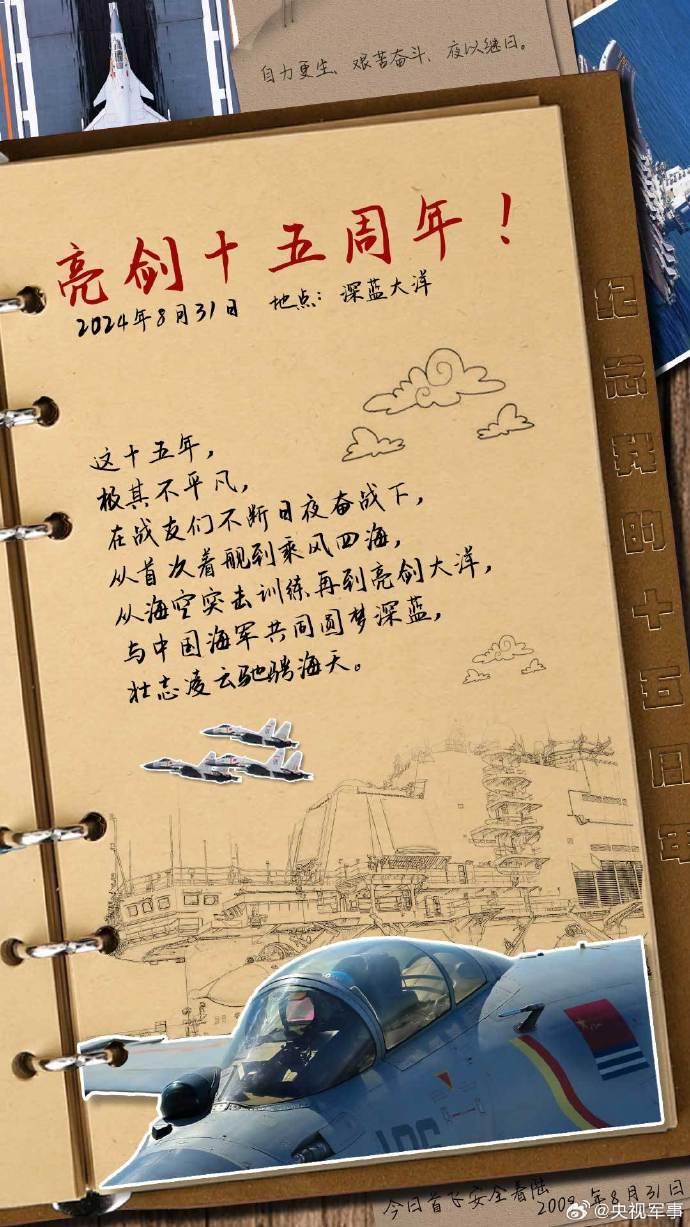 自力更生、艰苦奋斗、夜以继日。
亮剑十五周年！
2024年8月31日 地点：深蓝大洋
这十五年，
极其不平凡，
在战友们不断日夜奋战下，
从首次着舰到乘风四海，
从海空突击训练再到亮剑大洋，
与中国海军共同圆梦深蓝，
壮志凌云驰骋海天。
纪念我的十五周年
今日首飞安全着陆
年8月31日
@央视军事